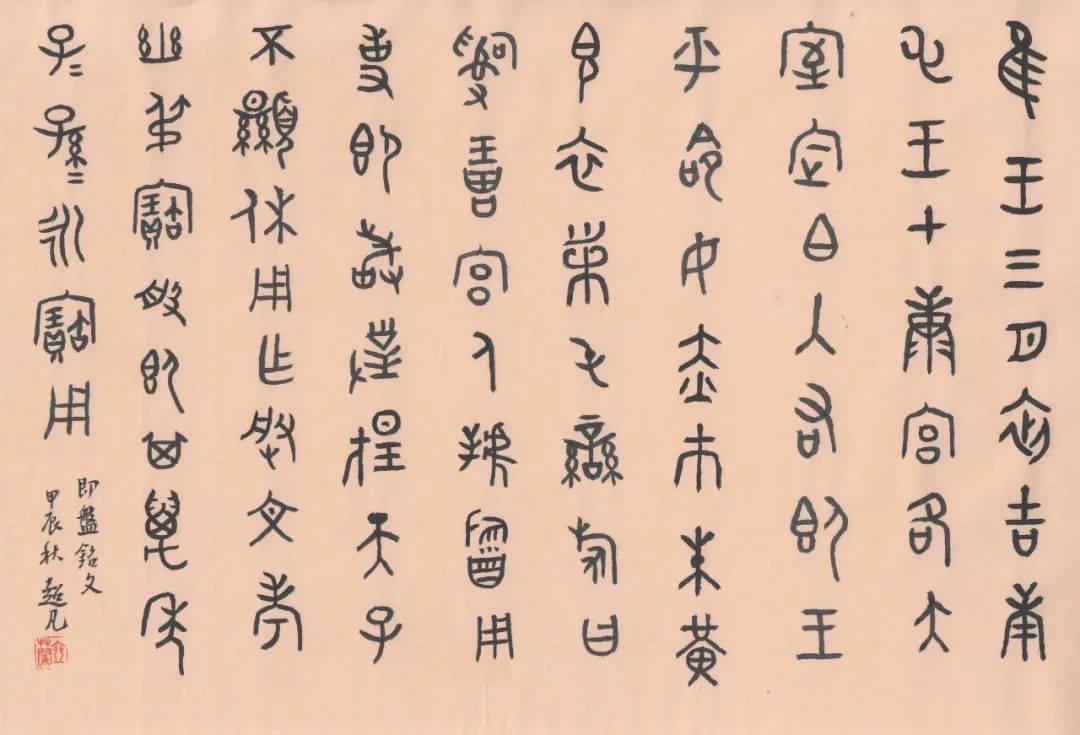 隹王三月初吉庚
申王才康宮各大
室定白入右即王
乎命女赤巿朱黃
玄衣黹屯䜌旂曰
嗣琱宮人虢旛用
事即敢對揚天子
不顯休用乍朕文考
幽弔寶簋即其萬年
子=孫=永寶用
即盤銘文
甲辰秋超凡